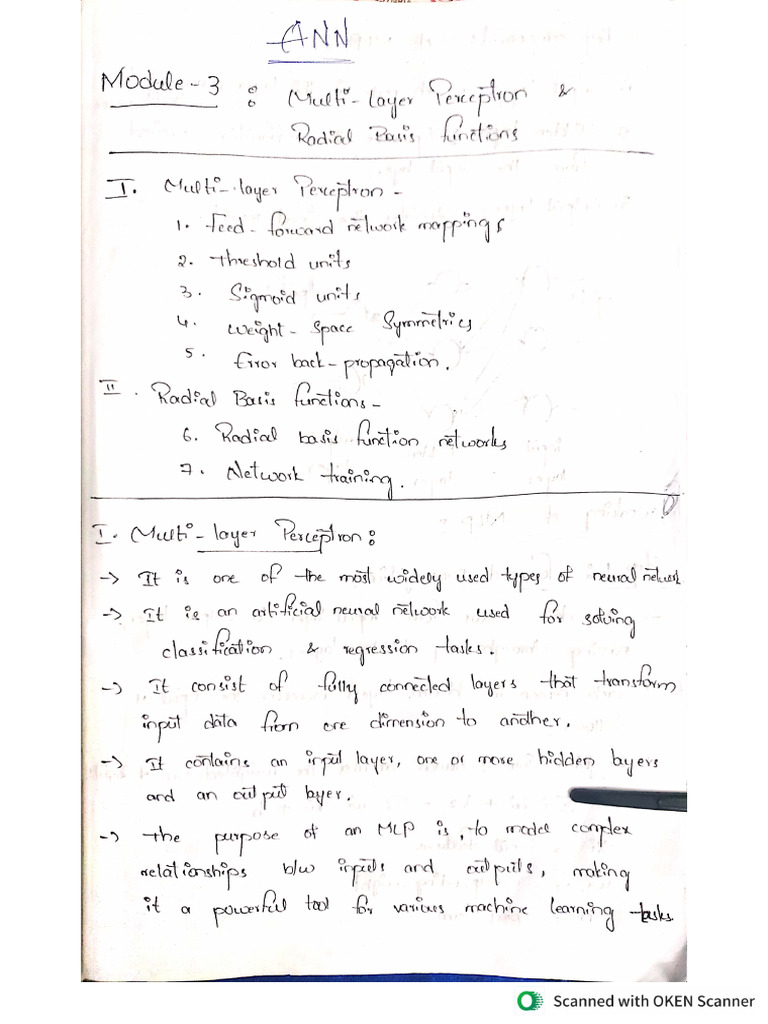 ANN
Module - 3 : Multi-Layer Perceptron &
Radial Basis functions
I. Multi-layer Perceptron -
1. Feed-forward network mappings
2. Threshold units
3. Sigmoid units
4. Weight-space symmetrics
5. Error back-propagation.
II. Radial Basis functions -
6. Radial basis function networks
7. Network training.
I. Multi-layer Perceptron:
-> It is one of the most widely used types of neural network
-> It is an artificial neural network used for solving
classification & regression tasks.
-> It consist of fully connected layers that transform
input data from one dimension to another.
-> It contains an input layer, one or more hidden layers
and an output layer.
-> The purpose of an MLP is, to model complex
relationships b/w inputs and outputs, making
it a powerful tool for various machine learning tasks
Scanned with OKEN Scanner